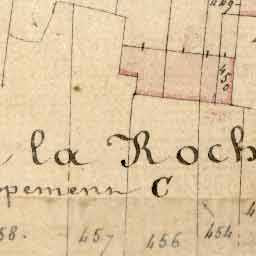 449.
450
la Roch
ppement C
58. 457 456 454.
4